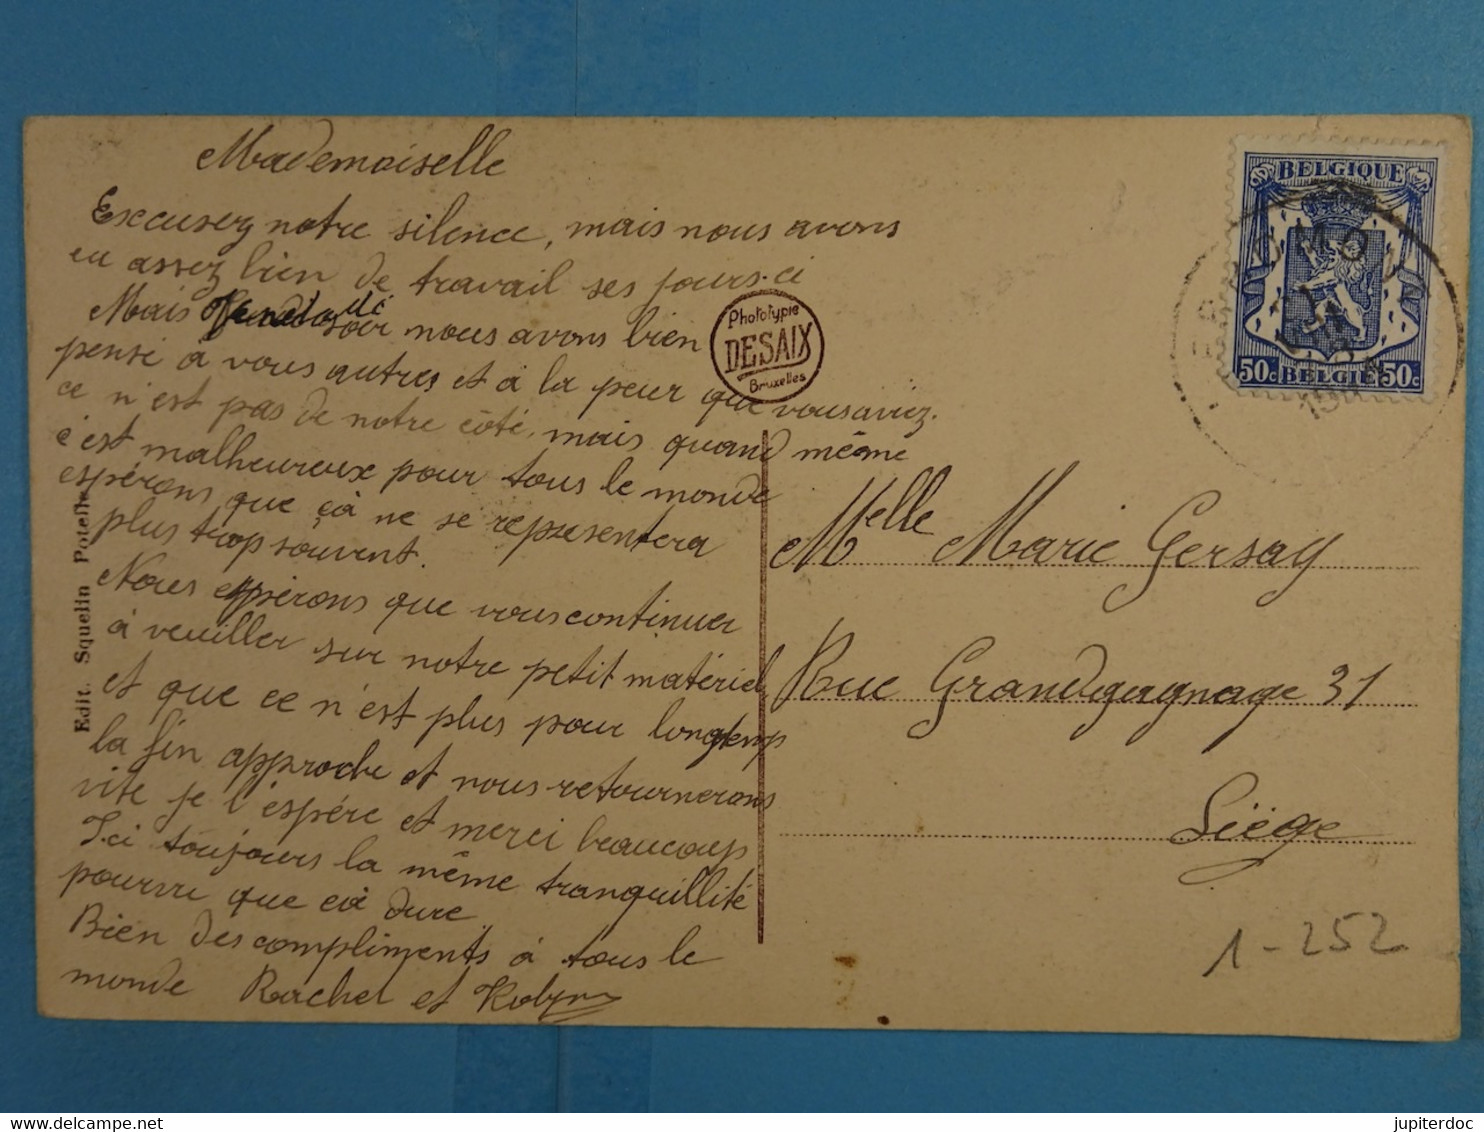 Mademoiselle
Excusez notre silence, mais nous avons
eu assez bien de travail ses jours-ci
Mais soir nous avons bien
pensé à vous autres et à la peur que vous aviez.
ce n'est pas de notre côté, mais quand même
c'est malheureux pour tous le monde
espérons que çà ne se representera
plus trop souvent.
Nous espérons que vous continuer
à veuiller sur notre petit matériel
et que ce n'est plus pour longtemps
la fin approche et nous retournerons
vite je l'espére et merci beaucoup
Ici toujours la même tranquillité
pourvu que cà dure
Bien des compliments à tous le
monde Rachel et Robyns
Edit. Squelin Potelle
Phototypie
DESAIX
Bruxelles
BELGIQUE
50c BELGIË 50c
Melle Marie Gersay
Rue Grandgagnage 31
Liège
1-252
delcampe.net
jupiterdoc